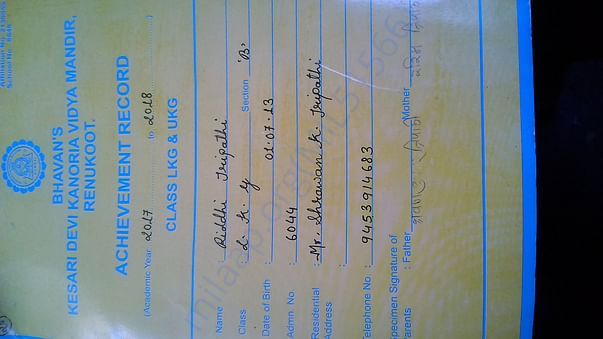 BHAVAN'S
KESARI DEVI KANORIA VIDYA MANDIR,
RENUKOOT.
ACHIEVEMENT RECORD
(Academic Year 2017 to 2018)
CLASS LKG & UKG
Name : Riddhi Tripathi
Class : L. K. G Section 'B'
Date of Birth : 01.07.13
Admn. No. : 6044
Residential : Mr. Shrawan K. Tripathi
Address :
Telephone No. : 9453914683
Specimen Signature of
Parents : Father Mother